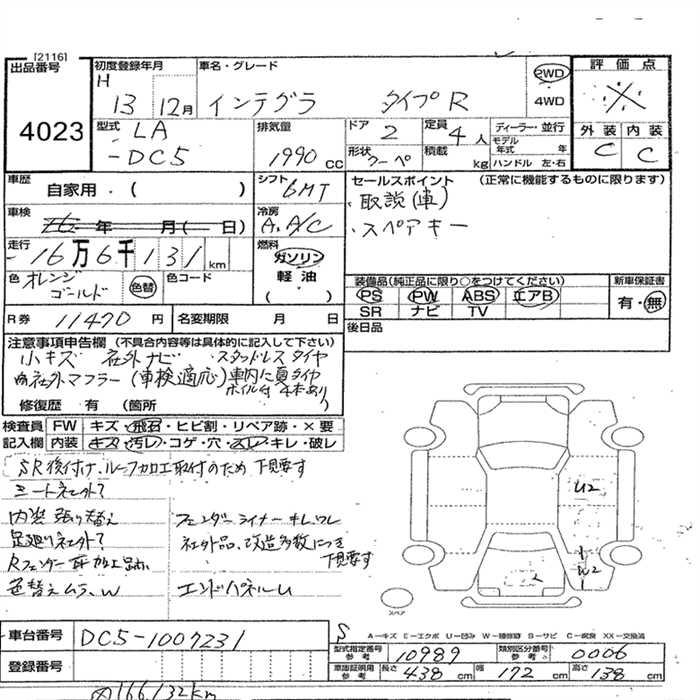 [2116]
出品番号
4023
初度登録年月
H
13 12月
車名・グレード
インテグラ タイプR
2WD
4WD
評価点
※
外装 内装
C C
型式 LA
-DC5
排気量
1990 cc
ドア 2
形状 クーペ
定員 4人
積載 kg
ディーラー・並行
モデル年式 年
ハンドル 左・右
車歴
自家用・( )
シフト
6MT
セールスポイント (正常に機能するものに限ります)
・取説(車)
・スペアキー
車検
年 月( 日)
冷房
A.A/C
走行
-16万6千131km
燃料
ガソリン
軽油
( )
色 オレンジ
ゴールド
色替
色コード
装備品(純正品に限り○をつけてください)
PS PW ABS エアB
SR ナビ TV
新車保証書
有・無
R券 11470円
名変期限 月 日
後日品
注意事項申告欄 (不具合内容等は具体的に記入して下さい)
小キズ 社外ナビ・スタッドレスタイヤ
社外マフラー(車検適応)車内に夏タイヤ
ホイル付 4本あり
修復歴 有 (箇所 )
検査員 FW キズ・飛石・ヒビ割・リペア跡・×要
記入欄 内装 キズ・汚レ・コゲ・穴・スレ・キレ・破レ
SR後付け、ルーフ加工取付のため下見要す
シート社外?
内装張り替え
足廻り社外?
Rフェンダー耳加工跡
色替えムラ、W
フェンダーライナーキレ、ワレ
社外品、改造多数につき
下見要す
エンドパネルU
U2
W2
スペア
A-キズ E-エクボ U-凹み W-補修跡 S-サビ C-腐食 XX-交換済
S
車台番号 DC5-1007231
登録番号
型式指定番号
参考
10989
類別区分番号
参考
0006
車庫証明用
参考
長さ 438cm 幅 172cm 高さ 138cm
166,132km